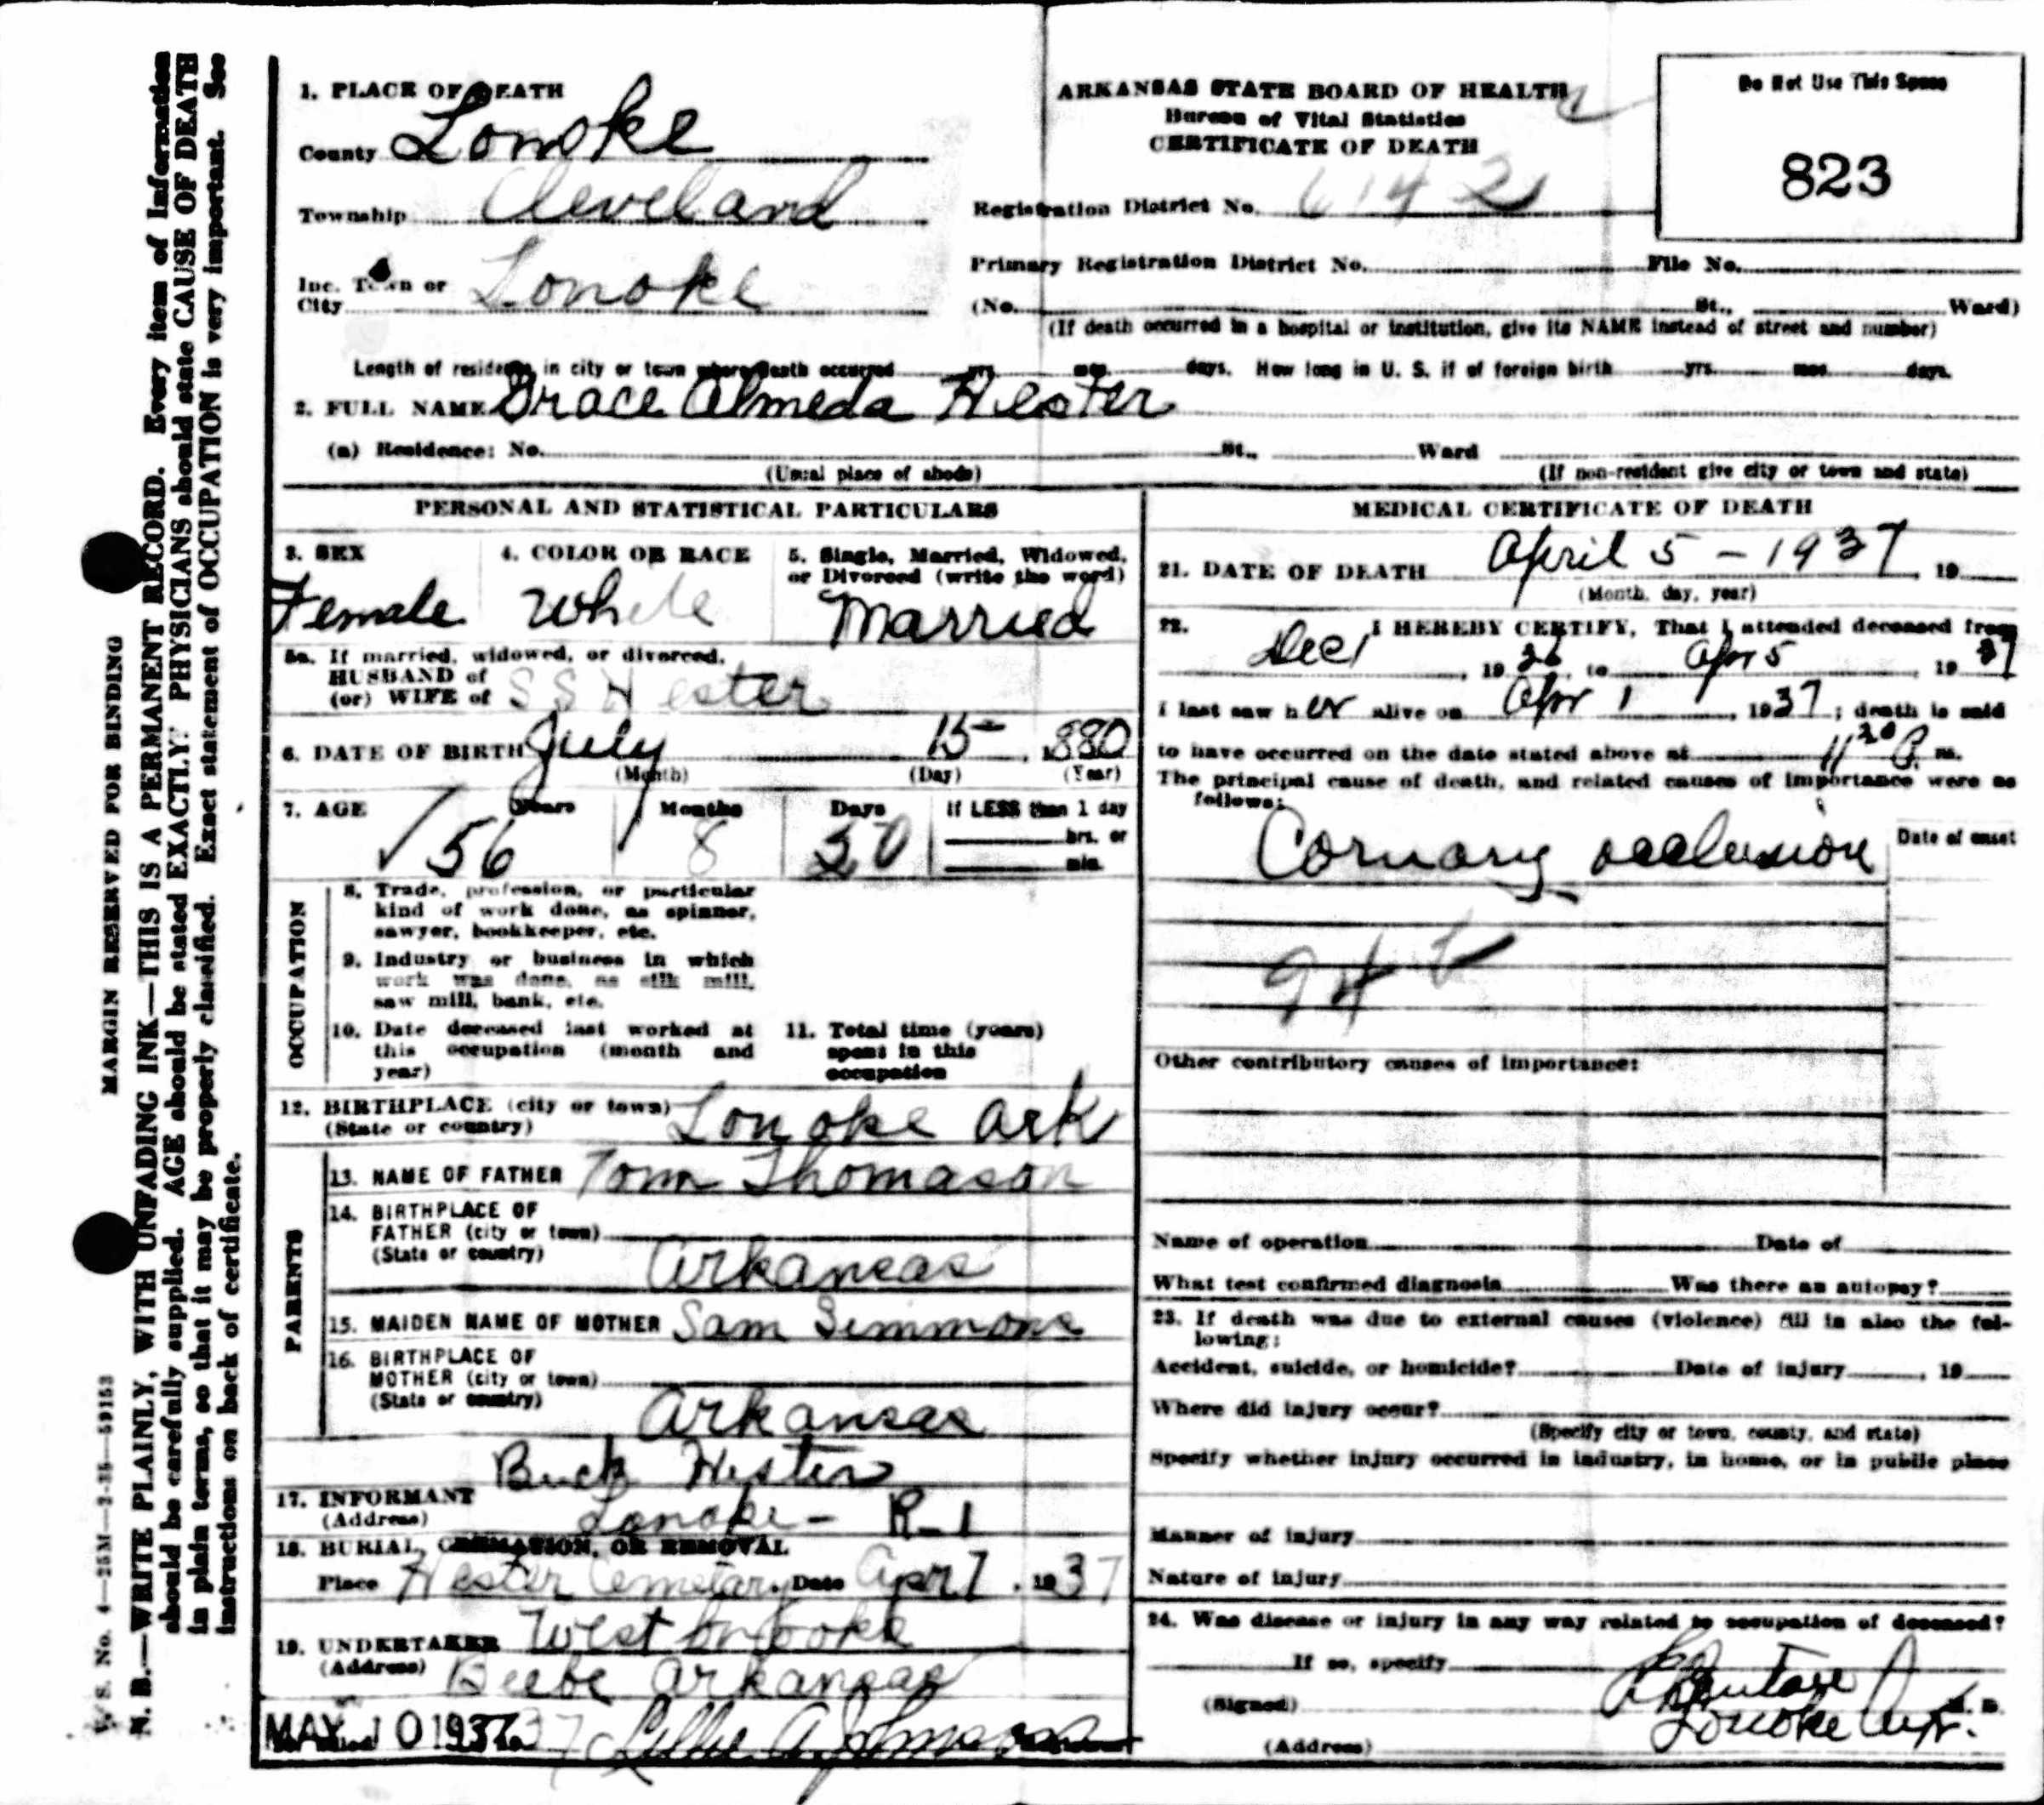 MARGIN RESERVED FOR BINDING
V. S. No. 4—25M—2-35—59153
N. B.—WRITE PLAINLY, WITH UNFADING INK—THIS IS A PERMANENT RECORD. Every item of information
should be carefully supplied. AGE should be stated EXACTLY. PHYSICIANS should state CAUSE OF DEATH
in plain terms, so that it may be properly classified. Exact statement of OCCUPATION is very important. See
instructions on back of certificate.
ARKANSAS STATE BOARD OF HEALTH
Bureau of Vital Statistics
CERTIFICATE OF DEATH
Do Not Use This Space
823
1. PLACE OF DEATH
County Lonoke
Township Cleveland
Registration District No. 6142
Inc. Town or
City Lonoke
Primary Registration District No. File No.
(No. St., Ward)
(If death occurred in a hospital or institution, give its NAME instead of street and number)
Length of residence in city or town where death occurred yrs. mos. days. How long in U. S. if of foreign birth yrs. mos. days.
2. FULL NAME Grace Almeda Hester
(a) Residence: No. St., Ward
(Usual place of abode) (If non-resident give city or town and state)
PERSONAL AND STATISTICAL PARTICULARS
3. SEX 4. COLOR OR RACE 5. Single, Married, Widowed,
or Divorced (write the word)
Female White Married
5a. If married, widowed, or divorced,
HUSBAND of
(or) WIFE of S S Hester
6. DATE OF BIRTH July 15 , 1880
(Month) (Day) (Year)
7. AGE Years Months Days If LESS than 1 day
56 8 20 hrs. or
min.
OCCUPATION
8. Trade, profession, or particular
kind of work done, as spinner,
sawyer, bookkeeper, etc.
9. Industry or business in which
work was done, as silk mill,
saw mill, bank, etc.
10. Date deceased last worked at
this occupation (month and
year)
11. Total time (years)
spent in this
occupation
12. BIRTHPLACE (city or town)
(State or country) Lonoke Ark
PARENTS
13. NAME OF FATHER Tom Thomason
14. BIRTHPLACE OF
FATHER (city or town)
(State or country) Arkansas
15. MAIDEN NAME OF MOTHER Sam Simmons
16. BIRTHPLACE OF
MOTHER (city or town)
(State or country) Arkansas
17. INFORMANT Buck Hester
(Address) Lonoke - R-1
18. BURIAL, CREMATION, OR REMOVAL
Place Hester Cemetary. Date Apr 7 , 1937
19. UNDERTAKER Westbrooke
(Address) Beebe Arkansas
MAY 10 1937 Lillie A Johnson
MEDICAL CERTIFICATE OF DEATH
21. DATE OF DEATH April 5 - 1937 , 19
(Month, day, year)
22. I HEREBY CERTIFY, That I attended deceased from
Dec 1 , 1936, to Apr 5 , 1937
I last saw her alive on Apr 1 , 1937; death is said
to have occurred on the date stated above at 11 30 P. m.
The principal cause of death, and related causes of importance were as
follows:
Date of onset
Cornary occlusion
94 b
Other contributory causes of importance:
Name of operation Date of
What test confirmed diagnosis Was there an autopsy?
23. If death was due to external causes (violence) fill in also the fol-
lowing:
Accident, suicide, or homicide? Date of injury , 19
Where did injury occur?
(Specify city or town, county, and state)
Specify whether injury occurred in industry, in home, or in public place
Manner of injury
Nature of injury
24. Was disease or injury in any way related to occupation of deceased?
If so, specify
(Signed) M. D.
(Address) Lonoke Ark.